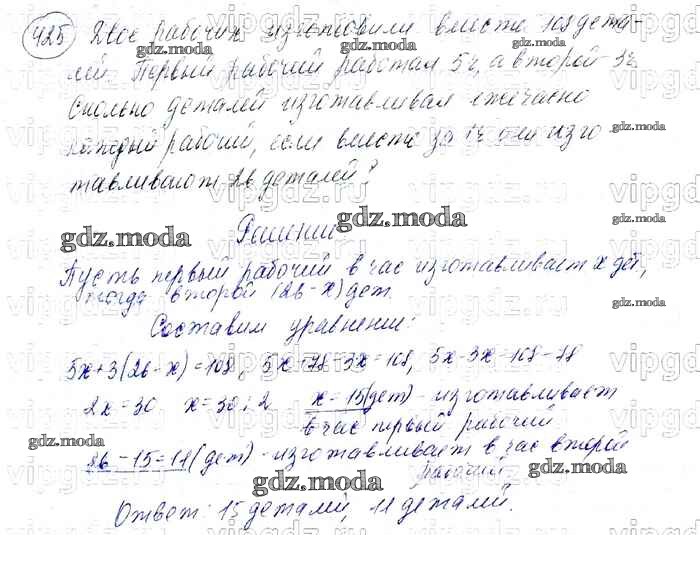 425 Двое рабочих изготовили вместе 108 дета-
лей. Первый рабочий работал 5ч, а второй 3ч.
Сколько деталей изготавливал ежечасно
каждый рабочий, если вместе за 1ч они изго
тавливают 26 деталей?
Решение
Пусть первый рабочий в час изготавливает x дет,
тогда второй (26-x) дет.
Составим уравнение:
5x+3(26-x)=108, 5x+78-3x=108, 5x-3x=108-78
2x=30 x=30:2 x=15(дет) - изготавливает
в час первый рабочий
26-15=11(дет) - изготавливает в час второй
рабочий
Ответ: 15 деталей, 11 деталей.
gdz.moda
vipgdz.ru